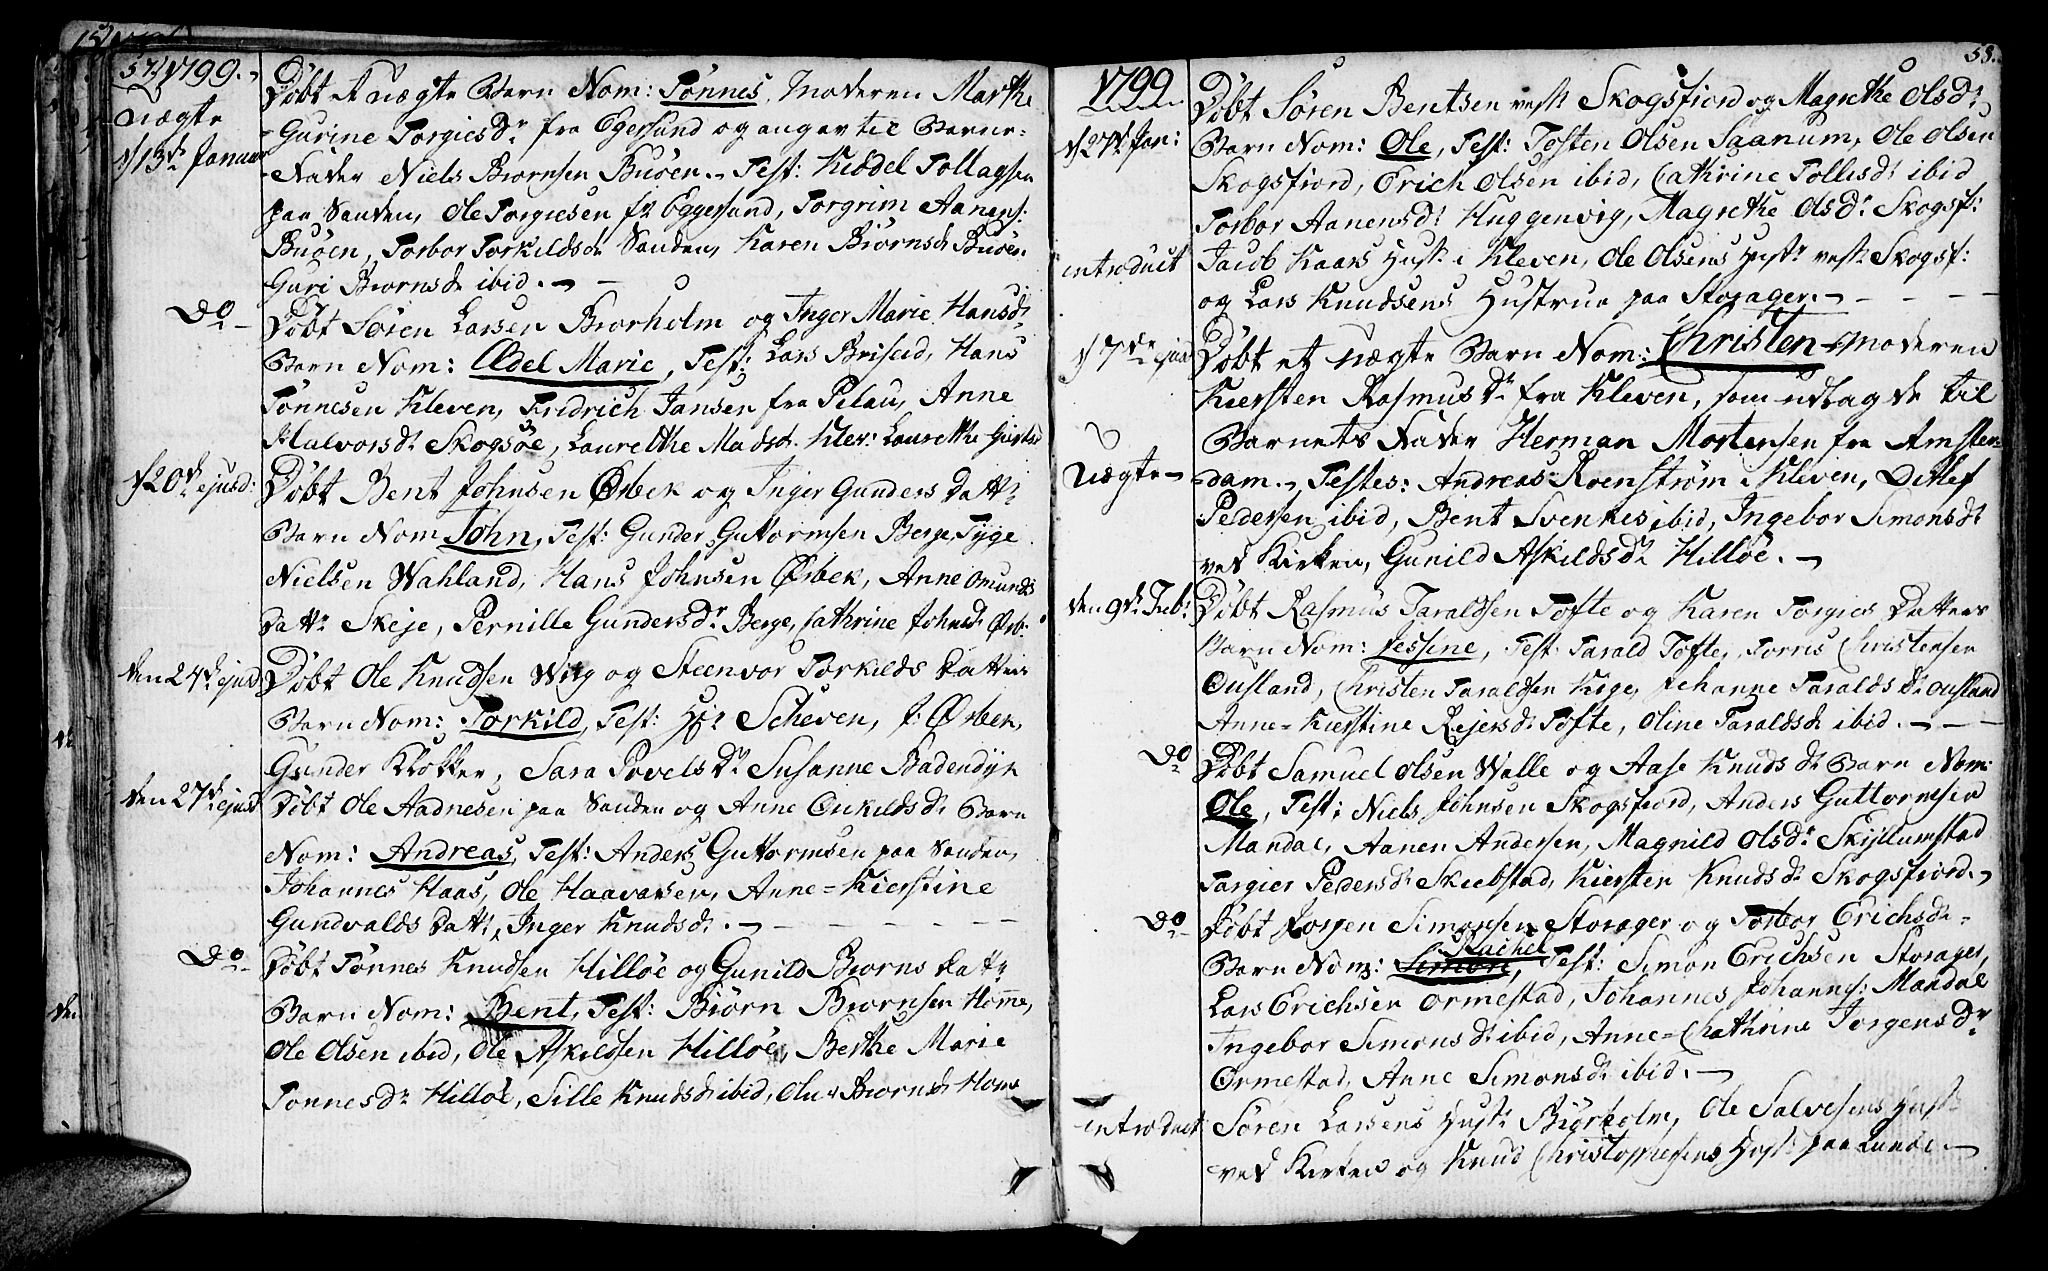 57. 1799.
Uægte
d 13de Januar
Døbt et uægte Barn Nom: Tønnes, Moderen Marthe
Gurine TorgiesDr fra Egersund og angav til Barne-
Fader Niels Biørnsen Buøen. Test: Kiddel Tollagsen
paa Sanden, Ole Torgiesen fr Eggersund, Torgrim Aanens:
Buøen, Torbor Torkildsdr Sanden, Karen Biørnsdr Buøen
Guri Biørnsdr ibid.
Do
Døbt Søren Larsen Biørholm og Inger Marie Hansdr
Barn Nom: Ædel Marie, Test: Lars Briseid, Hans
Tønnesen Kleven, Fridrich Jansen fra Pelau, Anne
Halvorsdr Skogsøe, Laurethe Madsdr Klev: Laurethe
d 20de ejusd:
Døbt Bent Johnsen Ørbek og Inger Gunders Dattr
Barn Nom John, Test: Gunder Guttormsen Berge, Tyge
Nielsen Wahland, Hans Johnsen Ørbek, Anne Omunds
Dattr Skeje, Pernille GundersDr Berge, Cathrine Johnsdr Ørb:
den 24de ejusd
Døbt Ole Knudsen Wiig og Steenvor Torkilds Datters
Barn Nom: Torkild, Test: Hr Scheven, J: Ørbek,
Gunder Klokker, Sara PovelsDr Susanne Badendyk
den 27de ejusd
Døbt Ole Aadnesen paa Sanden og Anne Eskildsdr Barn
Nom: Andreas, Test: Anders Guttormsen paa Sanden,
Johannes Haas, Ole Haavarsen, Anne=Kierstine
Gundvalds Dattr, Inger Knudsdr.
Do
Døbt Tønnes Knudsen Hilløe og Gunild Biørns Dattr
Barn Nom: Bent, Test: Biørn Biørnsen Homme,
Ole Olsen ibid, Ole Askildsen Hilløe, Berthe Marie
TønnesDr Hilløe, Sille Knudsdr ibid, Olu Biørnsdr Home
58.
1799
d 27de Jan:
Døbt Søren Bentsen vestr Skogsfiord og Magrethe OlsDr
Barn Nom: Ole, Test: Tosten Olsen Saanum, Ole Olsen
Skogsfiord, Erich Olsen ibid, Cathrine Tollisdr ibid
Torbor Aanensdr Huggenvig, Magrethe OlsDr Skogsf:
introduct
Jacob Kaars Hustr i Kleven, Ole Olsens Hustr vestr Skogsf:
og Lars Knudsens Hustrue paa Storager.
d 7de ejusd
Døbt et uægte Barn Nom: Christen Moderen
Kiersten RasmusDr fra Kleven, som udlagde til
Barnets Fader Herman Mortensen fra Amster-
Uægte
dam. Testes: Andreas Roenstrøm i Kleven, Ditlef
Pedersen ibid, Bent Svenkes ibid, Ingebor Simonsdr
ved Kirken, Gunild Askildsdr Hilløe.
den 9de Feb:
Døbt Rasmus Taraldsen Tofte og Karen Torgies Datters
Barn Nom: Sessine, Test: Tarald Tofte, Torris Christensen
Ousland, Christen Taraldsen Kige, Johanne TaraldsDr Ousland
Anne=Kierstine Rejersdr Tofte, Oline Taraldsdr ibid.
Do
Døbt Samuel Olsen Walle og Aase Knudsdr Barn Nom:
Ole, Test: Niels Johnsen Skogsfiord, Anders Guttormsen
Mandal, Aanen Andersen, Magnild OlsDr Skjellumstad
Targier Pedersdr Skiebstad, Kiersten Knudsdr Skogsfiord.
Do
Døbt Jørgen Simonsen Storager og Torbor Erichsdr
Rachel
Barn Nom: Simon, Test: Simon Erichsen Storager,
Lars Erichsen Ormestad, Johannes Johanns: Mandal
Ingebor Simonsdr ibid, Anne=Chathrine JørgensDr
Ormestad, Anne Simonsdr ibid.
introduct
Søren Larsens Hustr Biørholm, Ole Salvesens Hustr
ved Kirken og Knud Christophersens Hustr paa Lunde.